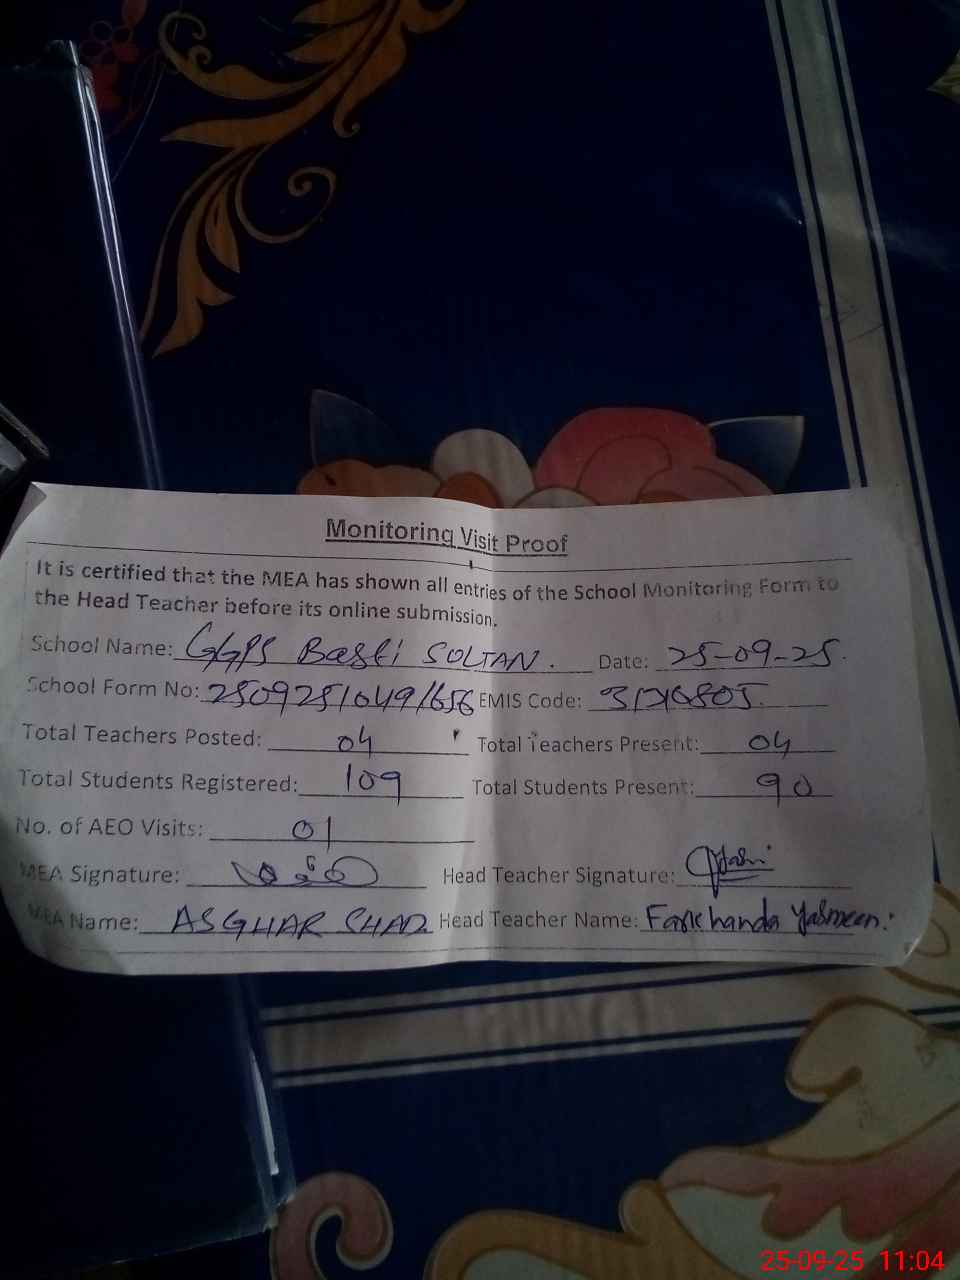 Monitoring Visit Proof
It is certified that the MEA has shown all entries of the School Monitoring Form to
the Head Teacher before its online submission.
School Name: GGPS Basti SOLTAN. Date: 25-09-25.
School Form No: 25092510491656 EMIS Code:
Total Teachers Posted: 04 Total Teachers Present: 04
Total Students Registered: 109 Total Students Present: 90
No. of AEO Visits: 01
MEA Signature: Head Teacher Signature:
MEA Name: ASGHAR SHAD Head Teacher Name: Farkhanda Yasmeen.
25-09-25 11:04